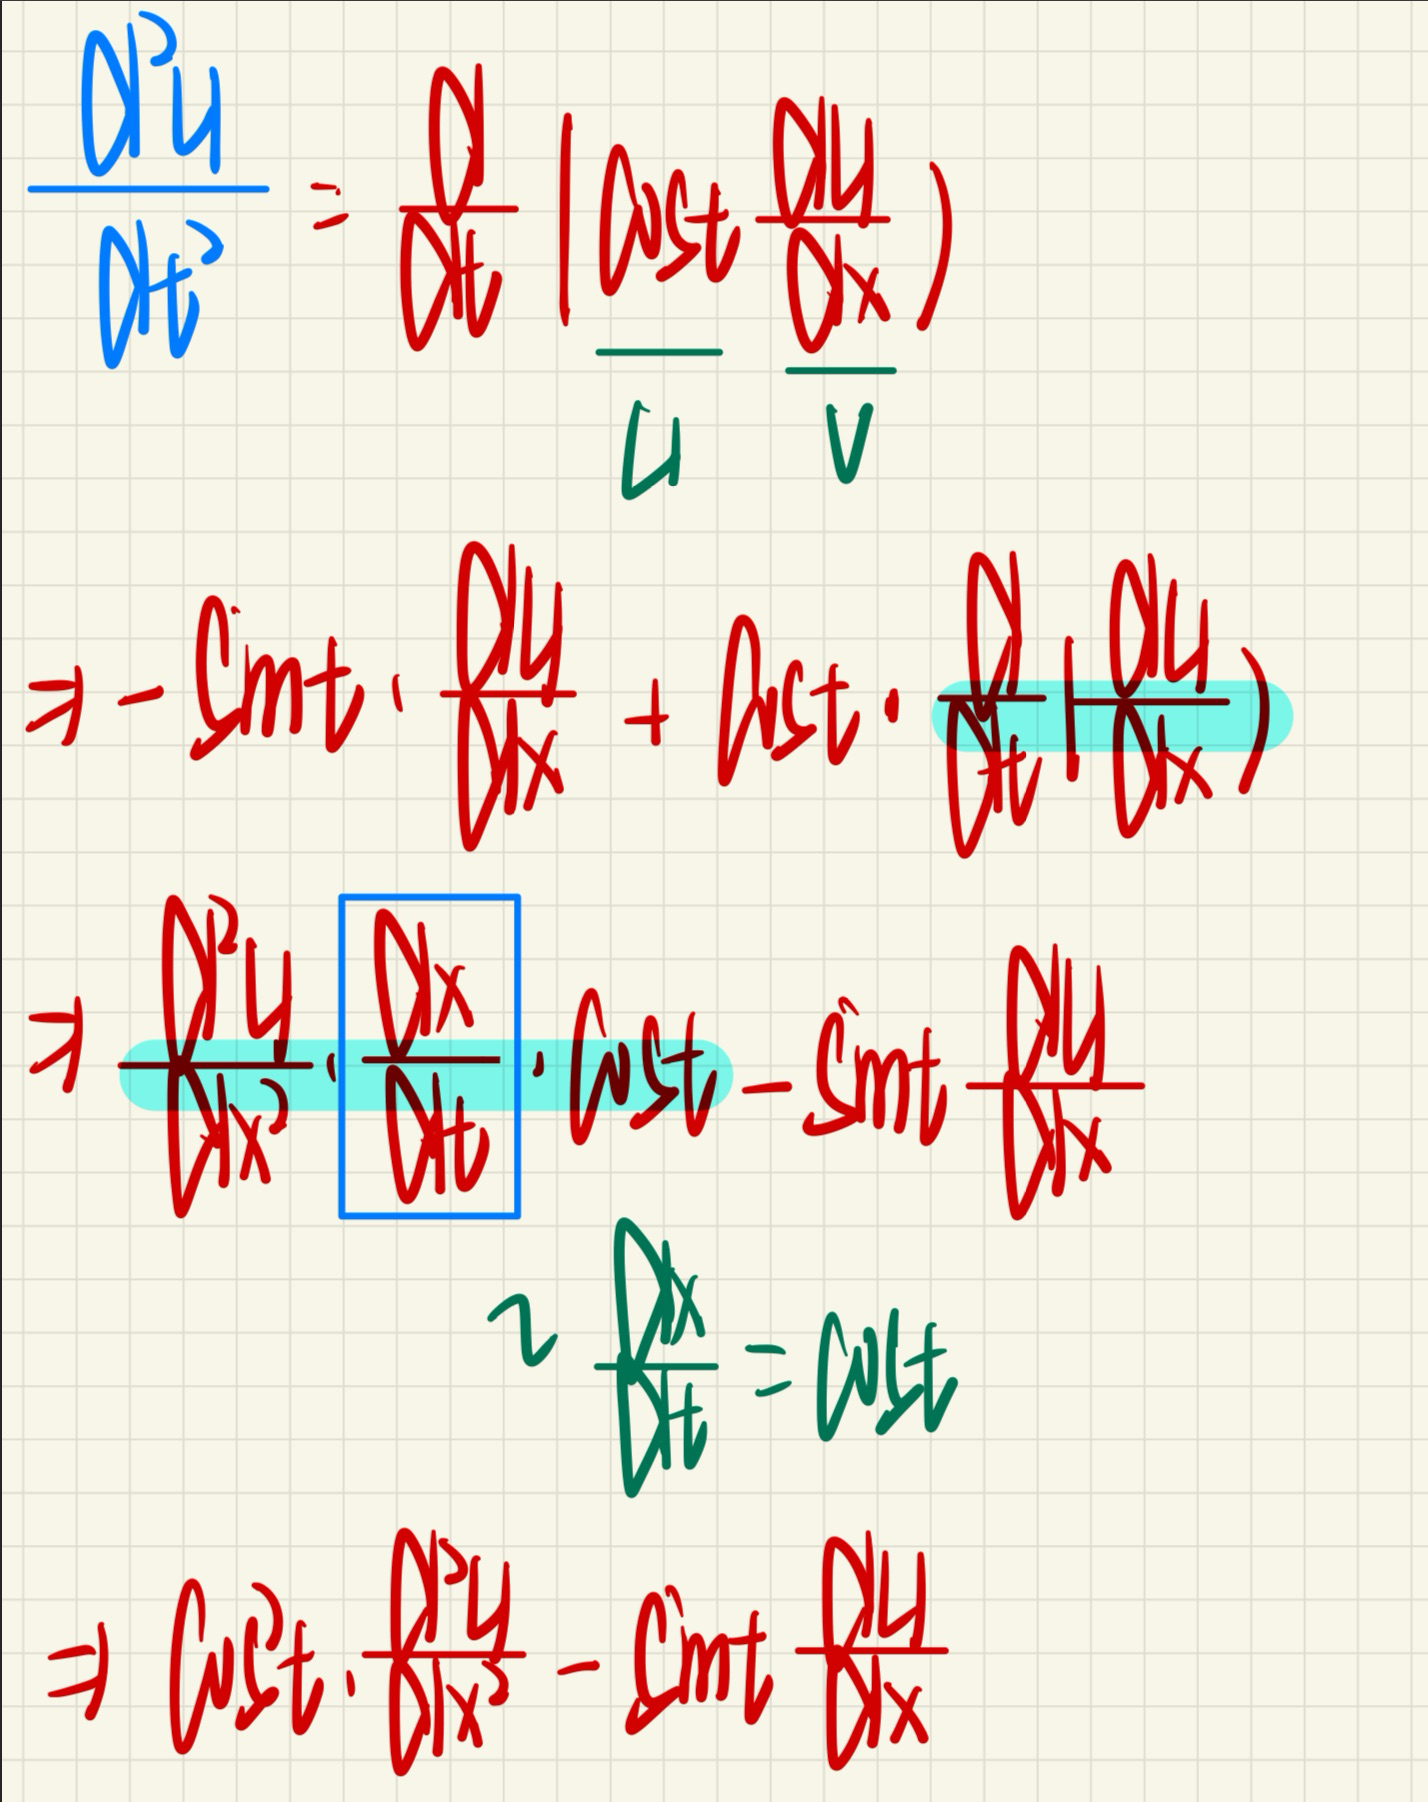 d²y/dt² = d/dt (cos t dy/dx)
u v
⇒ - sin t · dy/dx + cos t · d/dt (dy/dx)
⇒ d²y/dx² · dx/dt · cos t - sin t dy/dx
~ dx/dt = cos t
⇒ cos² t · d²y/dx² - sin t dy/dx